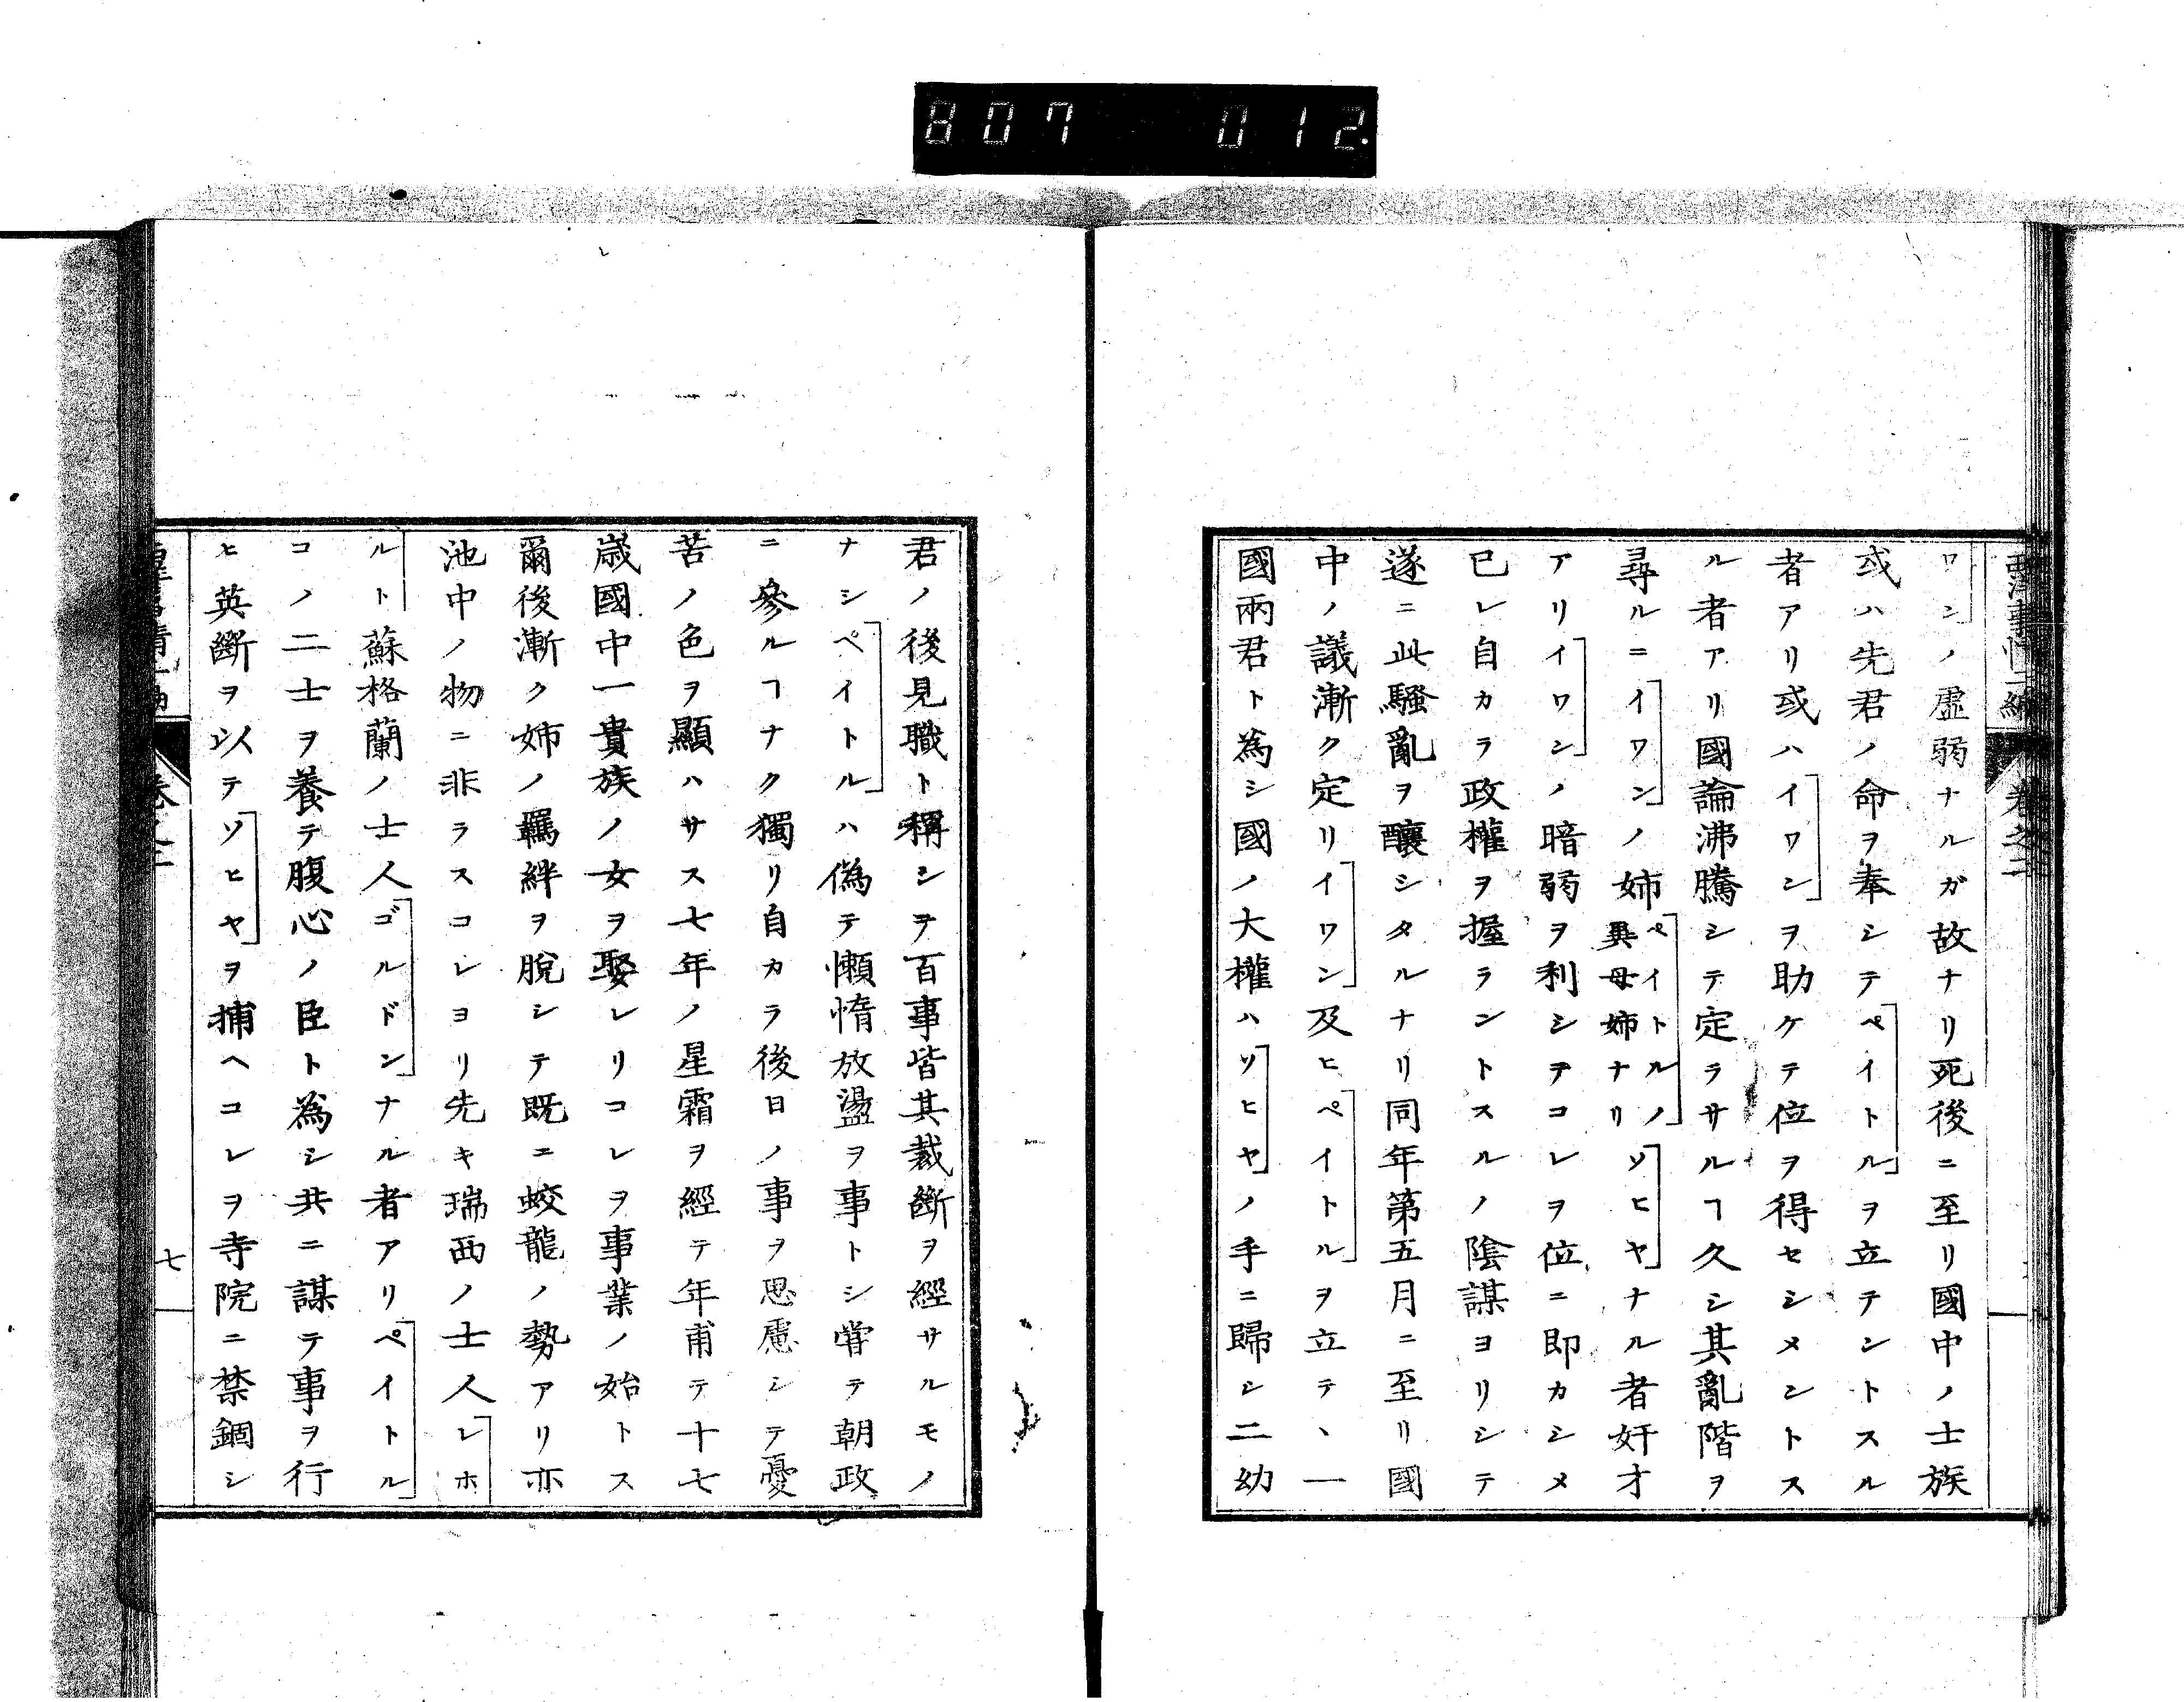 807 012.
西洋事情二編 卷之二
ワンノ虚弱ナルガ故ナリ死後ニ至リ國中ノ士族
或ハ先君ノ命ヲ奉シテペイトルヲ立テントスル
者アリ或ハイワンヲ助ケテ位ヲ得セシメントス
ル者アリ國論沸騰シテ定ラサルヿ久シ其亂階ヲ
尋ルニイワンノ姉ペイトルノ異母姉ナリソヒヤナル者奸才
アリイワンノ暗弱ヲ利シテコレヲ位ニ即カシメ
已レ自カラ政權ヲ握ラントスルノ陰謀ヨリシテ
遂ニ此騷亂ヲ釀シタルナリ同年第五月ニ至リ國
中ノ議漸ク定リイワン及ヒペイトルヲ立テ、一
國兩君ト為シ國ノ大權ハソヒヤノ手ニ歸シ二幼
君ノ後見職ト稱シテ百事皆其裁斷ヲ經サルモノ
ナシペイトルハ偽テ懶惰放盪ヲ事トシ嘗テ朝政
ニ參ルヿナク獨リ自カラ後日ノ事ヲ思慮シテ憂
苦ノ色ヲ顯ハサス七年ノ星霜ヲ經テ年甫テ十七
歳國中一貴族ノ女ヲ娶レリコレヲ事業ノ始トス
爾後漸ク姉ノ羈絆ヲ脫シテ既ニ蛟龍ノ勢アリ亦
池中ノ物ニ非ラスコレヨリ先キ瑞西ノ士人レホ
ルト蘇格蘭ノ士人ゴルドンナル者アリペイトル
コノ二士ヲ養テ腹心ノ臣ト為シ共ニ謀テ事ヲ行
ヒ英斷ヲ以テソヒヤヲ捕ヘコレヲ寺院ニ禁錮シ
七